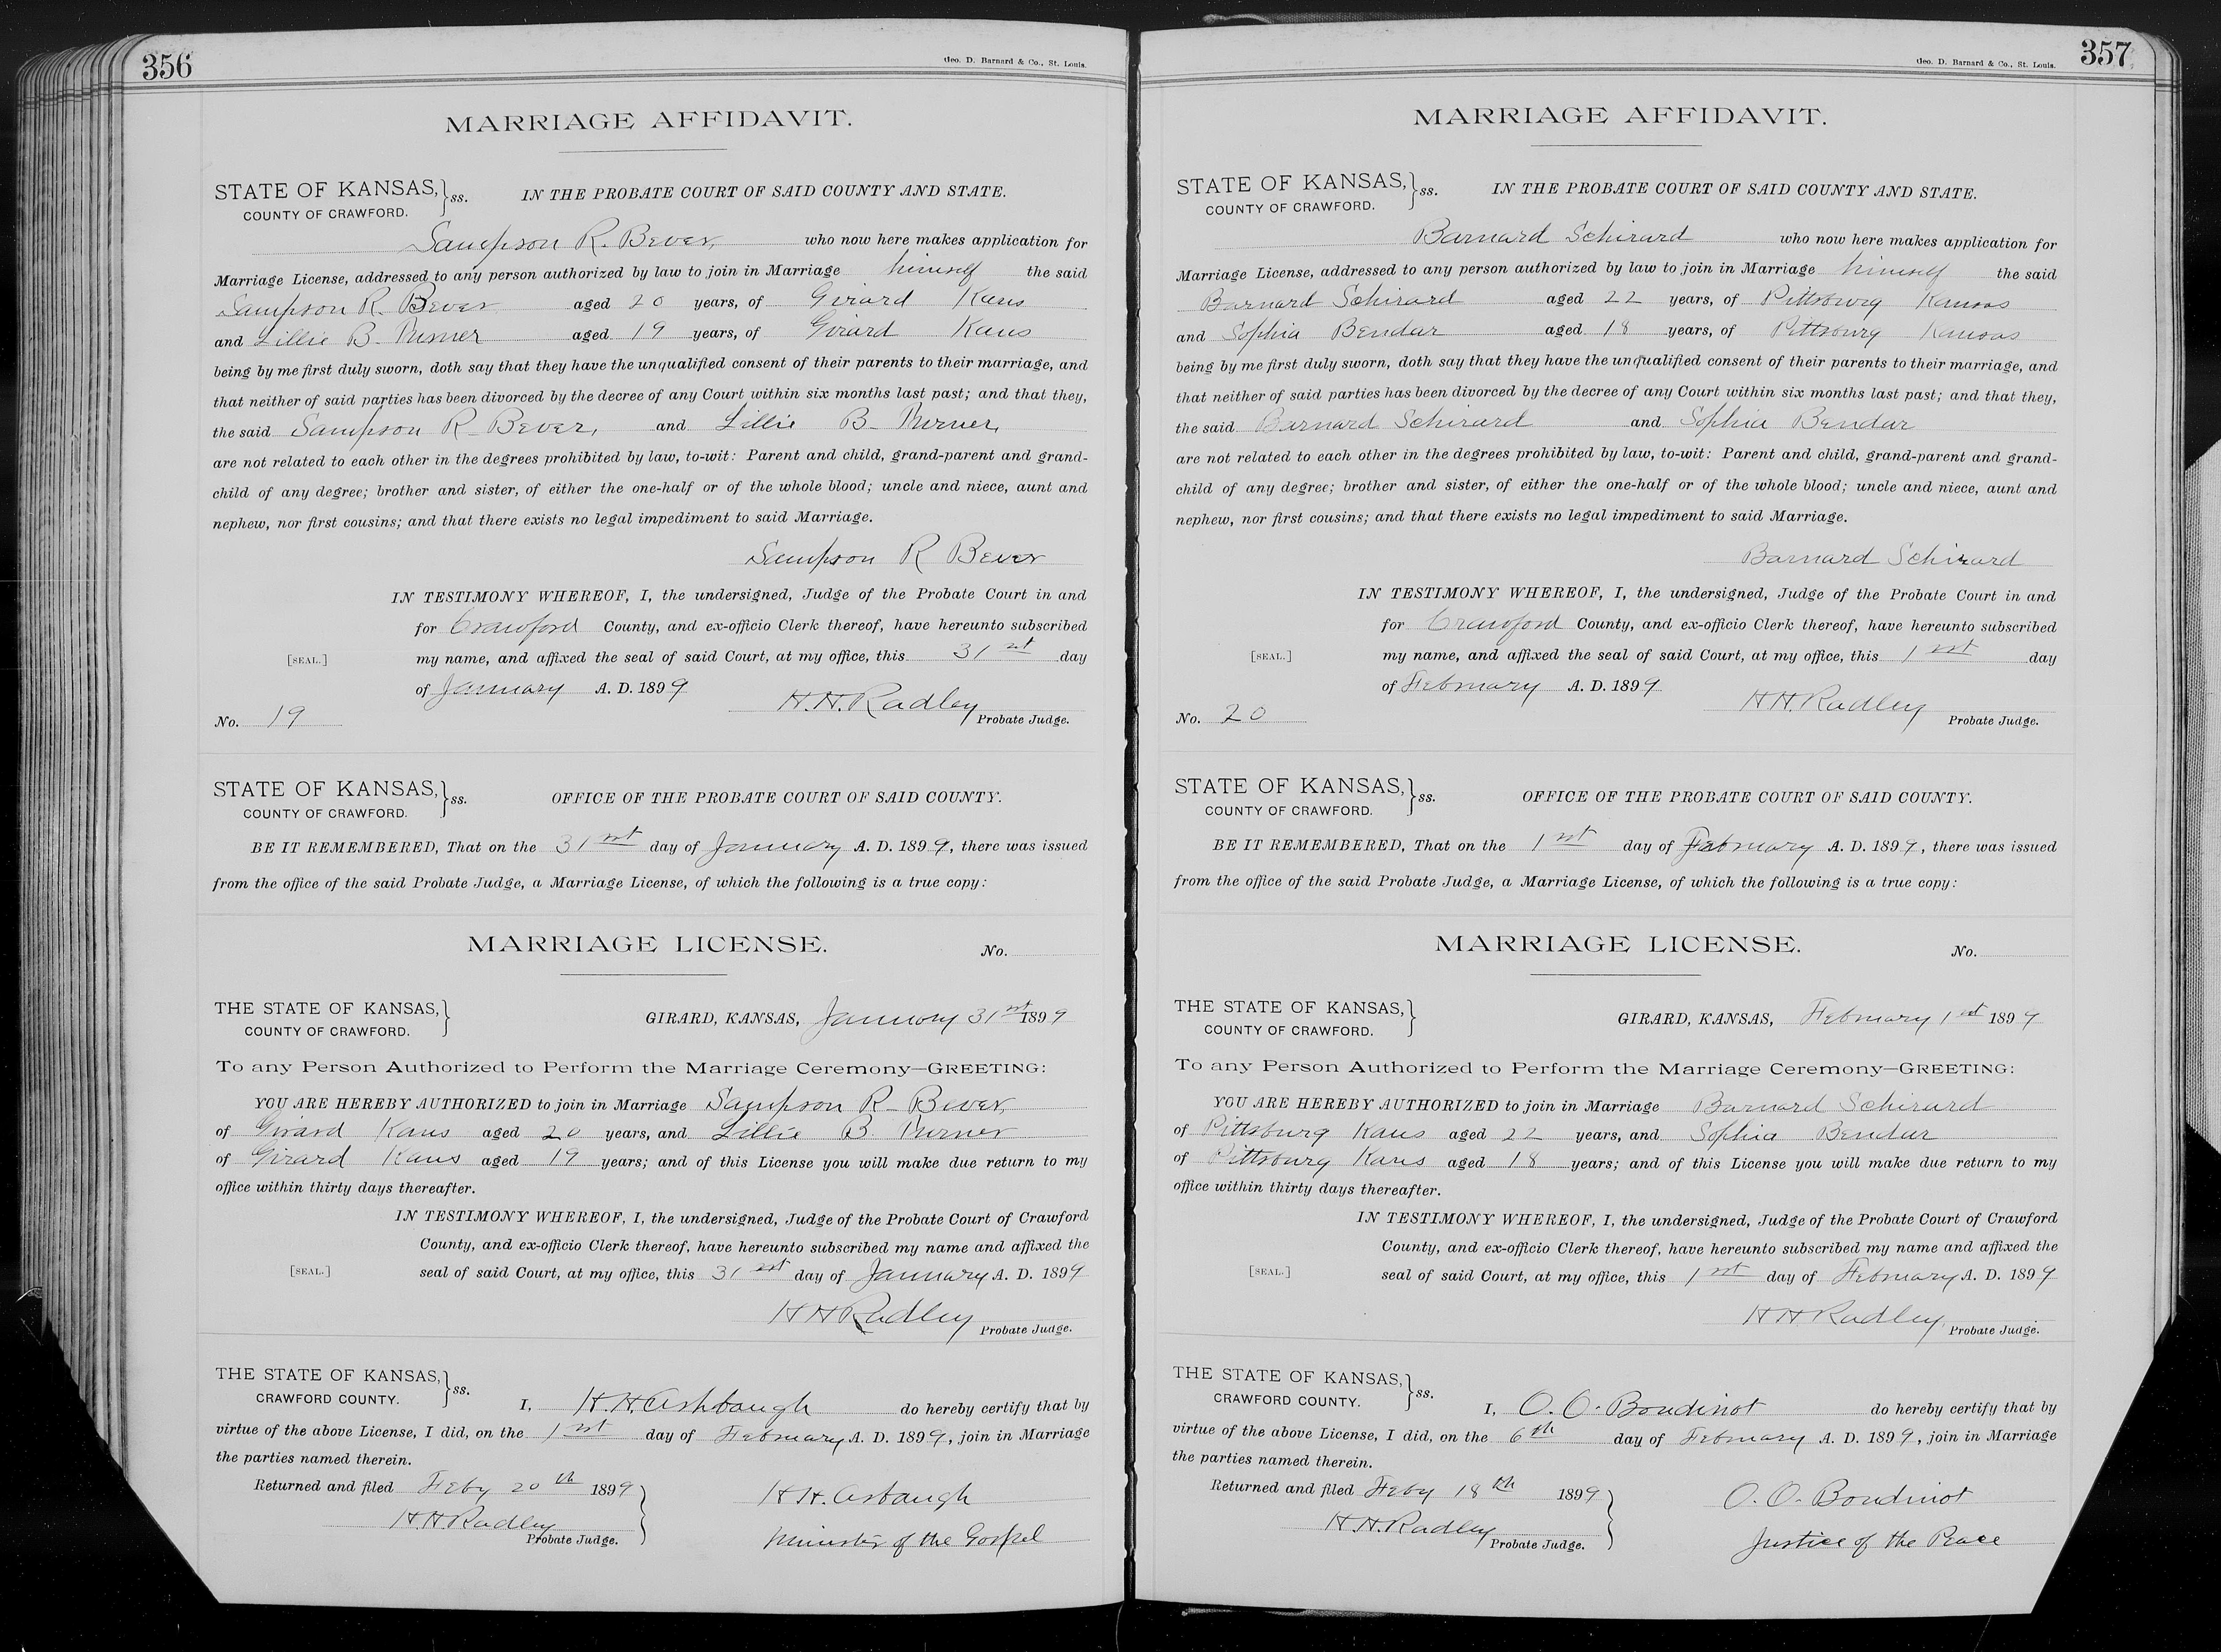 356
Geo. D. Barnard & Co., St. Louis.
MARRIAGE AFFIDAVIT.
STATE OF KANSAS, } ss. IN THE PROBATE COURT OF SAID COUNTY AND STATE.
COUNTY OF CRAWFORD.
Sampson R. Bever, who now here makes application for
Marriage License, addressed to any person authorized by law to join in Marriage himself the said
Sampson R. Bever aged 20 years, of Girard Kans
and Lillie B. Turner aged 19 years, of Girard Kans
being by me first duly sworn, doth say that they have the unqualified consent of their parents to their marriage, and
that neither of said parties has been divorced by the decree of any Court within six months last past; and that they,
the said Sampson R. Bever, and Lillie B. Turner,
are not related to each other in the degrees prohibited by law, to-wit: Parent and child, grand-parent and grand-
child of any degree; brother and sister, of either the one-half or of the whole blood; uncle and niece, aunt and
nephew, nor first cousins; and that there exists no legal impediment to said Marriage.
Sampson R Bever
IN TESTIMONY WHEREOF, I, the undersigned, Judge of the Probate Court in and
for Crawford County, and ex-officio Clerk thereof, have hereunto subscribed
[SEAL.] my name, and affixed the seal of said Court, at my office, this 31st day
of January A. D. 1899
H. H. Radley
No. 19 Probate Judge.
STATE OF KANSAS, } ss. OFFICE OF THE PROBATE COURT OF SAID COUNTY.
COUNTY OF CRAWFORD.
BE IT REMEMBERED, That on the 31st day of January A. D. 1899, there was issued
from the office of the said Probate Judge, a Marriage License, of which the following is a true copy:
MARRIAGE LICENSE. No.
THE STATE OF KANSAS, } GIRARD, KANSAS, January 31st 1899
COUNTY OF CRAWFORD.
To any Person Authorized to Perform the Marriage Ceremony—GREETING:
YOU ARE HEREBY AUTHORIZED to join in Marriage Sampson R. Bever,
of Girard Kans aged 20 years, and Lillie B. Turner
of Girard Kans aged 19 years; and of this License you will make due return to my
office within thirty days thereafter.
IN TESTIMONY WHEREOF, I, the undersigned, Judge of the Probate Court of Crawford
County, and ex-officio Clerk thereof, have hereunto subscribed my name and affixed the
[SEAL.] seal of said Court, at my office, this 31st day of January A. D. 1899
H H Radley
Probate Judge.
THE STATE OF KANSAS, } ss.
CRAWFORD COUNTY. I, H. H. Ashbaugh do hereby certify that by
virtue of the above License, I did, on the 1st day of February A. D. 1899, join in Marriage
the parties named therein.
Returned and filed Feby 20th 1899 } H H. Asbaugh
H. H. Radley
Probate Judge. Minister of the Gospel
357
Geo. D. Barnard & Co., St. Louis.
MARRIAGE AFFIDAVIT.
STATE OF KANSAS, } ss. IN THE PROBATE COURT OF SAID COUNTY AND STATE.
COUNTY OF CRAWFORD.
Barnard Schirard who now here makes application for
Marriage License, addressed to any person authorized by law to join in Marriage himself the said
Barnard Schirard aged 22 years, of Pittsburg Kansas
and Sophia Bendar aged 18 years, of Pittsburg Kansas
being by me first duly sworn, doth say that they have the unqualified consent of their parents to their marriage, and
that neither of said parties has been divorced by the decree of any Court within six months last past; and that they,
the said Barnard Schirard and Sophia Bendar
are not related to each other in the degrees prohibited by law, to-wit: Parent and child, grand-parent and grand-
child of any degree; brother and sister, of either the one-half or of the whole blood; uncle and niece, aunt and
nephew, nor first cousins; and that there exists no legal impediment to said Marriage.
Barnard Schirard
IN TESTIMONY WHEREOF, I, the undersigned, Judge of the Probate Court in and
for Crawford County, and ex-officio Clerk thereof, have hereunto subscribed
[SEAL.] my name, and affixed the seal of said Court, at my office, this 1st day
of February A. D. 1899
H H. Radley
No. 20 Probate Judge.
STATE OF KANSAS, } ss. OFFICE OF THE PROBATE COURT OF SAID COUNTY.
COUNTY OF CRAWFORD.
BE IT REMEMBERED, That on the 1st day of February A. D. 1899, there was issued
from the office of the said Probate Judge, a Marriage License, of which the following is a true copy:
MARRIAGE LICENSE. No.
THE STATE OF KANSAS, } GIRARD, KANSAS, February 1st 1899
COUNTY OF CRAWFORD.
To any Person Authorized to Perform the Marriage Ceremony—GREETING:
YOU ARE HEREBY AUTHORIZED to join in Marriage Barnard Schirard
of Pittsburg Kans aged 22 years, and Sophia Bendar
of Pittsburg Kans aged 18 years; and of this License you will make due return to my
office within thirty days thereafter.
IN TESTIMONY WHEREOF, I, the undersigned, Judge of the Probate Court of Crawford
County, and ex-officio Clerk thereof, have hereunto subscribed my name and affixed the
[SEAL.] seal of said Court, at my office, this 1st day of February A. D. 1899
H H. Radley
Probate Judge.
THE STATE OF KANSAS, } ss.
CRAWFORD COUNTY. I, O. O. Boudinot do hereby certify that by
virtue of the above License, I did, on the 6th day of February A. D. 1899, join in Marriage
the parties named therein.
Returned and filed Feby 18th 1899 } O. O. Boudinot
H. H. Radley
Probate Judge. Justice of the Peace